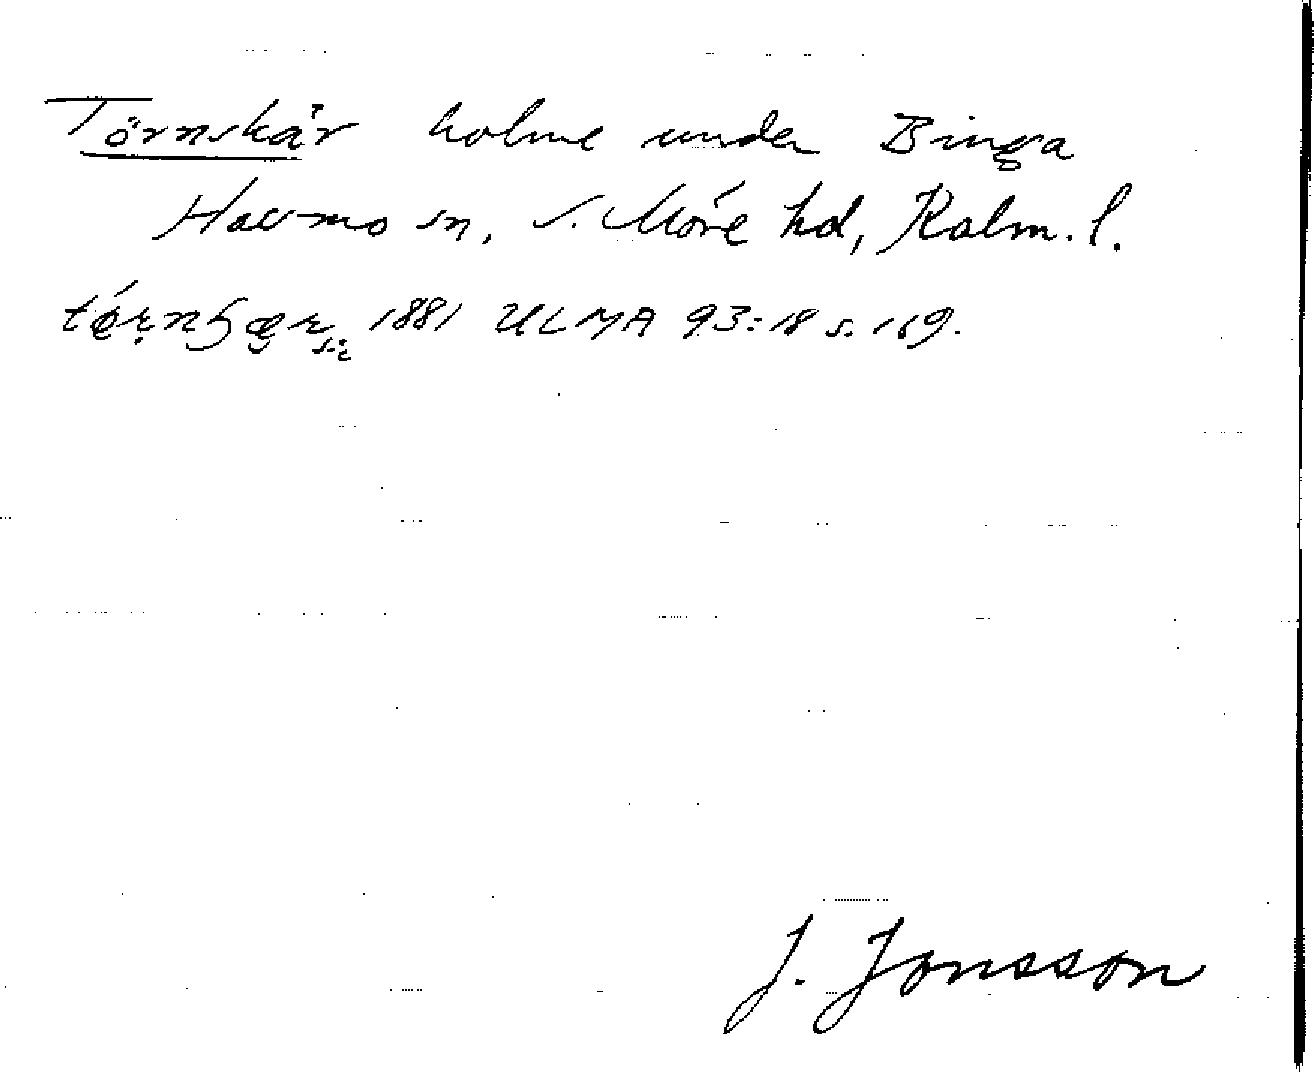 Törnskär holme under Binga
Hossmo sn, S. Möre hd, Kalm. l.
1881 ULMA 93:18 s. 169.
J. Jonsson